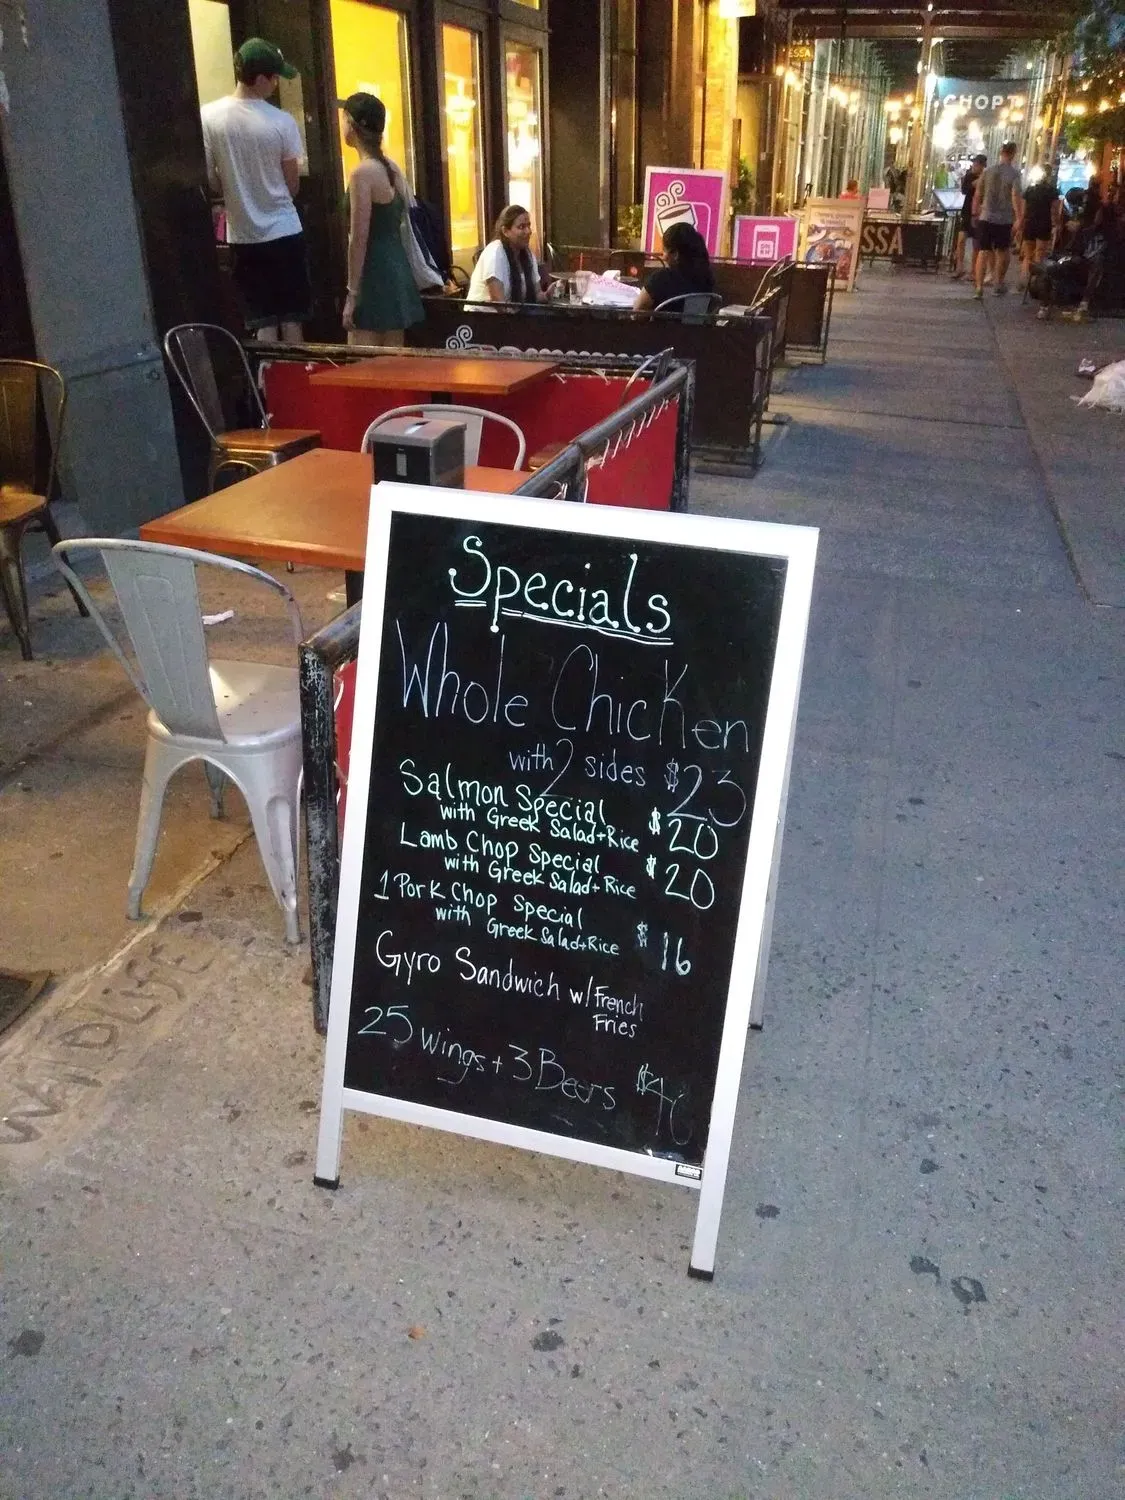 CHOPT
ESSA
Specials
Whole Chicken
with 2 sides $23
Salmon Special
with Greek Salad+Rice $20
Lamb Chop Special
with Greek Salad+Rice $20
1 Pork Chop Special
with Greek Salad+Rice $16
Gyro Sandwich w/ French
Fries
25 wings + 3 Beers